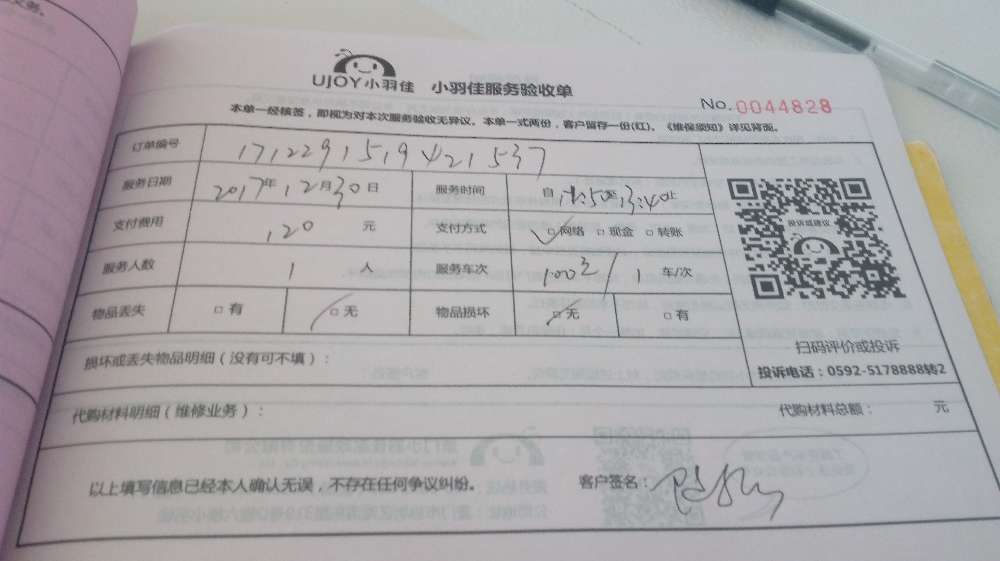 UJOY小羽佳 小羽佳服务验收单
No. 0044828
本单一经核签，即视为对本次服务验收无异议。本单一式两份，客户留存一份(红)。《维保须知》详见背面。
订单编号 1712291519421537
服务日期 2017年12月30日 服务时间 自 至13:40止
支付费用 120 元 支付方式 □网络 □现金 □转账
服务人数 1 人 服务车次 1 车/次
物品丢失 □有 □无 物品损坏 □无 □有
损坏或丢失物品明细（没有可不填）：
投诉或建议
扫码评价或投诉
投诉电话：0592-5178888转2
代购材料明细（维修业务）： 代购材料总额： 元
以上填写信息已经本人确认无误，不存在任何争议纠纷。 客户签名：